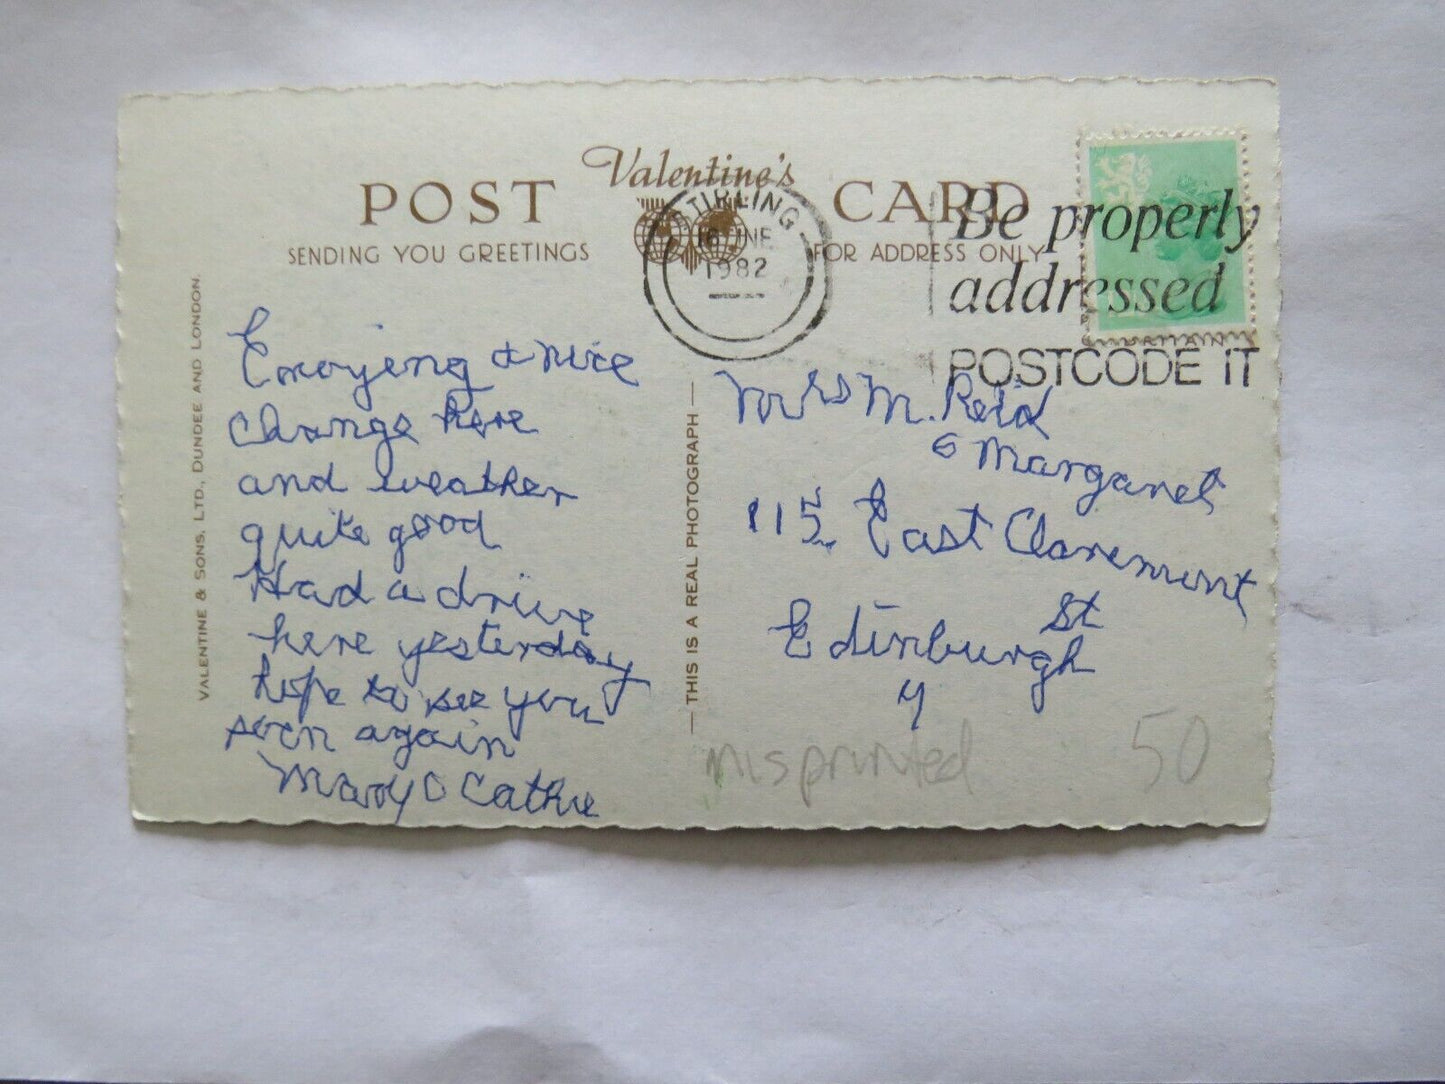 Valentine's
POST CARD
SENDING YOU GREETINGS
FOR ADDRESS ONLY
STIRLING
1982
Be properly
addressed
POSTCODE IT
VALENTINE & SONS, LTD., DUNDEE AND LONDON.
Enoyjeng a nice
change here
and weather
quite good
Had a drive
here yesterday
hope to see you
soon again
Mary & Cathie
— THIS IS A REAL PHOTOGRAPH —
Mrs M. Reid
& Margaret
115 East Claremont
St
Edinburgh
misprinted
50